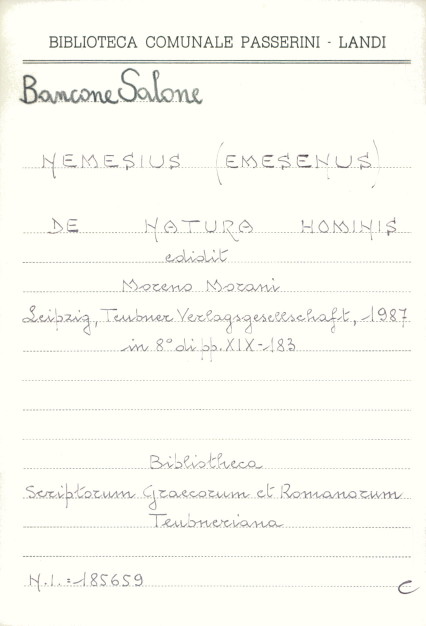 BIBLIOTECA COMUNALE PASSERINI - LANDI
Bancone Salone
NEMESIUS (EMESENUS)
DE NATURA HOMINIS
edidit
Moreno Morani
Leipzig, Teubner Verlagsgesellschaft, 1987
in 8° di pp. XIX-183
Bibliotheca
Scriptorum Graecorum et Romanorum
Teubneriana
N.I.=185659
C